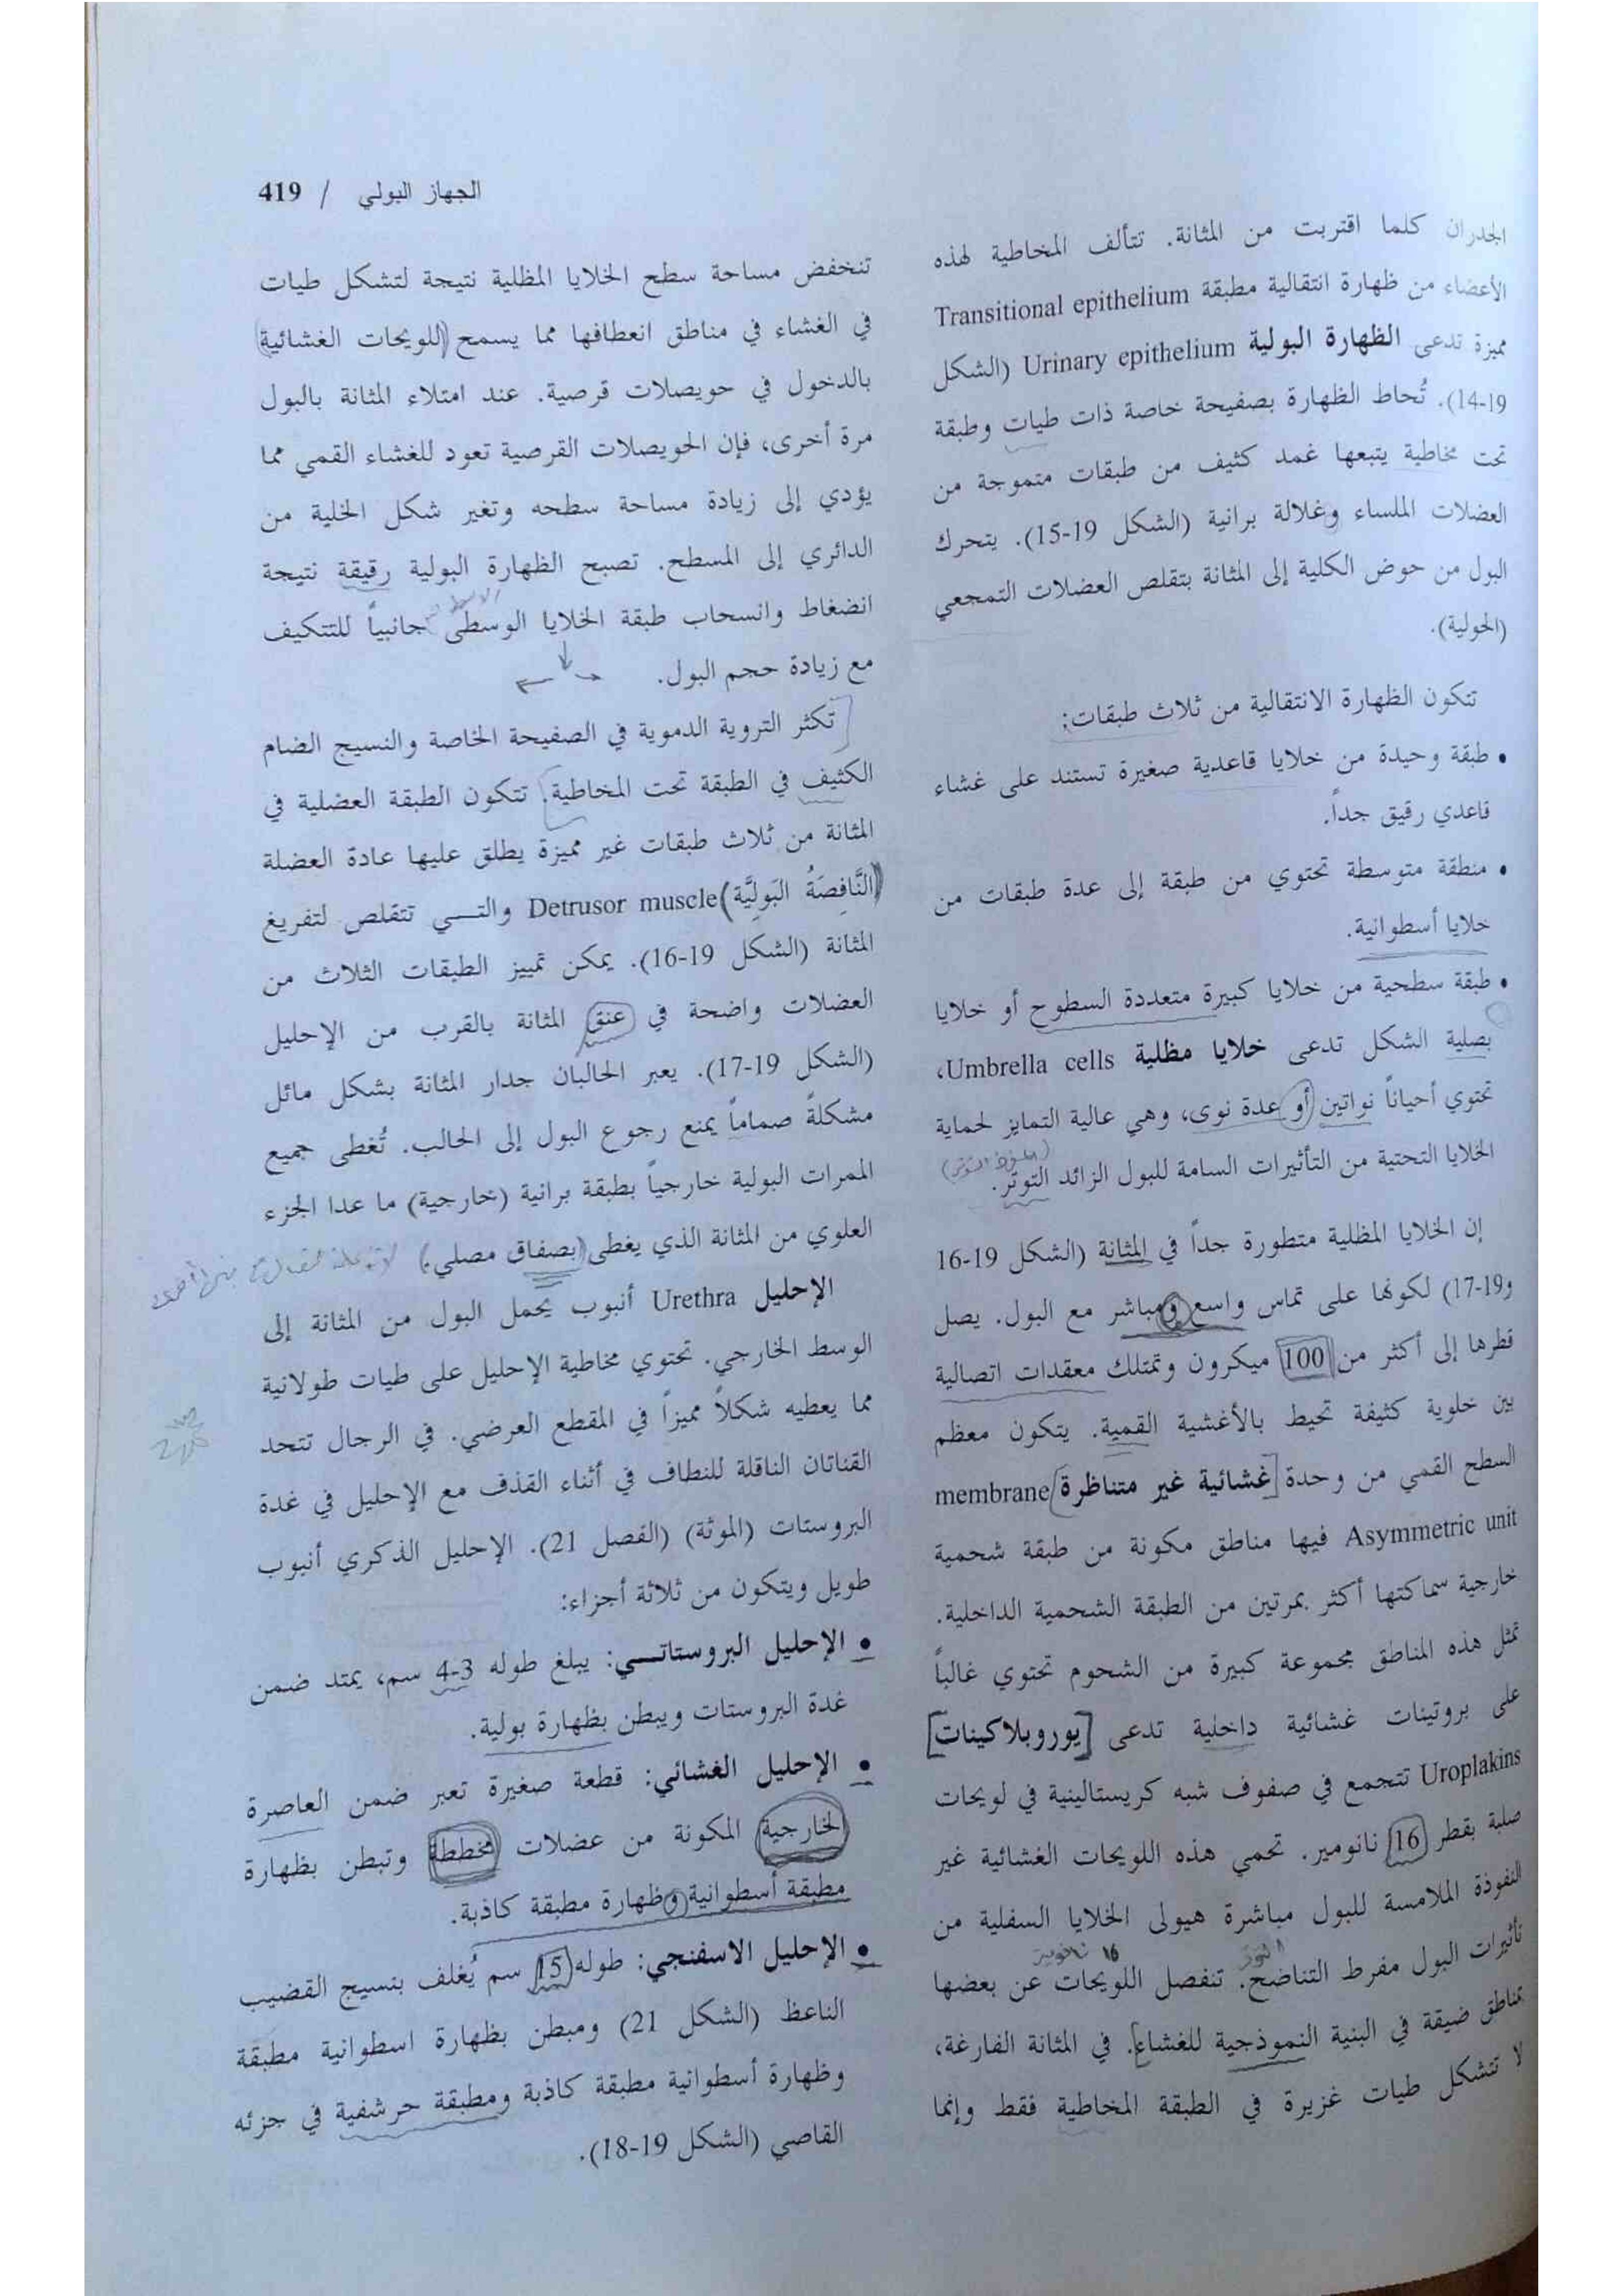 الجهاز البولي / 419
الجدران كلما اقتربت من المثانة. تتألف المخاطية لهذه
الأعضاء من ظهارة انتقالية مطبقة Transitional epithelium
مميزة تدعى الظهارة البولية Urinary epithelium (الشكل
19-14). تُحاط الظهارة بصفيحة خاصة ذات طيات وطبقة
تحت مخاطية يتبعها غمد كثيف من طبقات متموجة من
العضلات الملساء وغلالة برانية (الشكل 19-15). يتحرك
البول من حوض الكلية إلى المثانة بتقلص العضلات التمجعي
(الحولية).
تتكون الظهارة الانتقالية من ثلاث طبقات:
• طبقة وحيدة من خلايا قاعدية صغيرة تستند على غشاء
قاعدي رقيق جداً.
• منطقة متوسطة تحتوي من طبقة إلى عدة طبقات من
خلايا أسطوانية.
• طبقة سطحية من خلايا كبيرة متعددة السطوح أو خلايا
بصلية الشكل تدعى خلايا مظلية Umbrella cells،
تحتوي أحياناً نواتين أو عدة نوى، وهي عالية التمايز لحماية
الخلايا التحتية من التأثيرات السامة للبول الزائد التوتر.
إن الخلايا المظلية متطورة جداً في المثانة (الشكل 19-16
و19-17) لكونها على تماس واسع ومباشر مع البول. يصل
قطرها إلى أكثر من 100 ميكرون وتمتلك معقدات اتصالية
بين خلوية كثيفة تحيط بالأغشية القمية. يتكون معظم
السطح القمي من وحدة غشائية غير متناظرة membrane
Asymmetric unit فيها مناطق مكونة من طبقة شحمية
خارجية سماكتها أكثر بمرتين من الطبقة الشحمية الداخلية.
تمثل هذه المناطق مجموعة كبيرة من الشحوم تحتوي غالباً
على بروتينات غشائية داخلية تدعى [يوروبلاكينات]
Uroplakins تتجمع في صفوف شبه كريستالينية في لويحات
صلبة بقطر 16 نانومير. تحمي هذه اللويحات الغشائية غير
النفوذة الملامسة للبول مباشرة هيولى الخلايا السفلية من
تأثيرات البول مفرط التناضح. تنفصل اللويحات عن بعضها
بمناطق ضيقة في البنية النموذجية للغشاء. في المثانة الفارغة،
لا تتشكل طيات غزيرة في الطبقة المخاطية فقط وإنما
تنخفض مساحة سطح الخلايا المظلية نتيجة لتشكل طيات
في الغشاء في مناطق انعطافها مما يسمح (للويحات الغشائية)
بالدخول في حويصلات قرصية. عند امتلاء المثانة بالبول
مرة أخرى، فإن الحويصلات القرصية تعود للغشاء القمي مما
يؤدي إلى زيادة مساحة سطحه وتغير شكل الخلية من
الدائري إلى المسطح. تصبح الظهارة البولية رقيقة نتيجة
انضغاط وانسحاب طبقة الخلايا الوسطى جانبياً للتتكيف
مع زيادة حجم البول.
تكثر التروية الدموية في الصفيحة الخاصة والنسيج الضام
الكثيف في الطبقة تحت المخاطية. تتكون الطبقة العضلية في
المثانة من ثلاث طبقات غير مميزة يطلق عليها عادة العضلة
(النَّافِصَةُ البَولِيَّة) Detrusor muscle والتي تتقلص لتفريغ
المثانة (الشكل 19-16). يمكن تمييز الطبقات الثلاث من
العضلات واضحة في عنق المثانة بالقرب من الإحليل
(الشكل 19-17). يعبر الحالبان جدار المثانة بشكل مائل
مشكلةً صماماً يمنع رجوع البول إلى الحالب. تُغطى جميع
الممرات البولية خارجياً بطبقة برانية (خارجية) ما عدا الجزء
العلوي من المثانة الذي يغطى (بصفاق مصلي.)
الإحليل Urethra أنبوب يحمل البول من المثانة إلى
الوسط الخارجي. تحتوي مخاطية الإحليل على طيات طولانية
مما يعطيه شكلاً مميزاً في المقطع العرضي. في الرجال تتحد
القناتان الناقلة للنطاف في أثناء القذف مع الإحليل في غدة
البروستات (الموثة) (الفصل 21). الإحليل الذكري أنبوب
طويل ويتكون من ثلاثة أجزاء:
• الإحليل البروستاتي: يبلغ طوله 3-4 سم، يمتد ضمن
غدة البروستات ويبطن بظهارة بولية.
• الإحليل الغشائي: قطعة صغيرة تعبر ضمن العاصرة
الخارجية المكونة من عضلات مخططة وتبطن بظهارة
مطبقة أسطوانية وظهارة مطبقة كاذبة.
• الإحليل الاسفنجي: طوله 15 سم يُغلف بنسيج القضيب
الناعظ (الشكل 21) ومبطن بظهارة اسطوانية مطبقة
وظهارة أسطوانية مطبقة كاذبة ومطبقة حرشفية في جزئه
القاصي (الشكل 19-18).